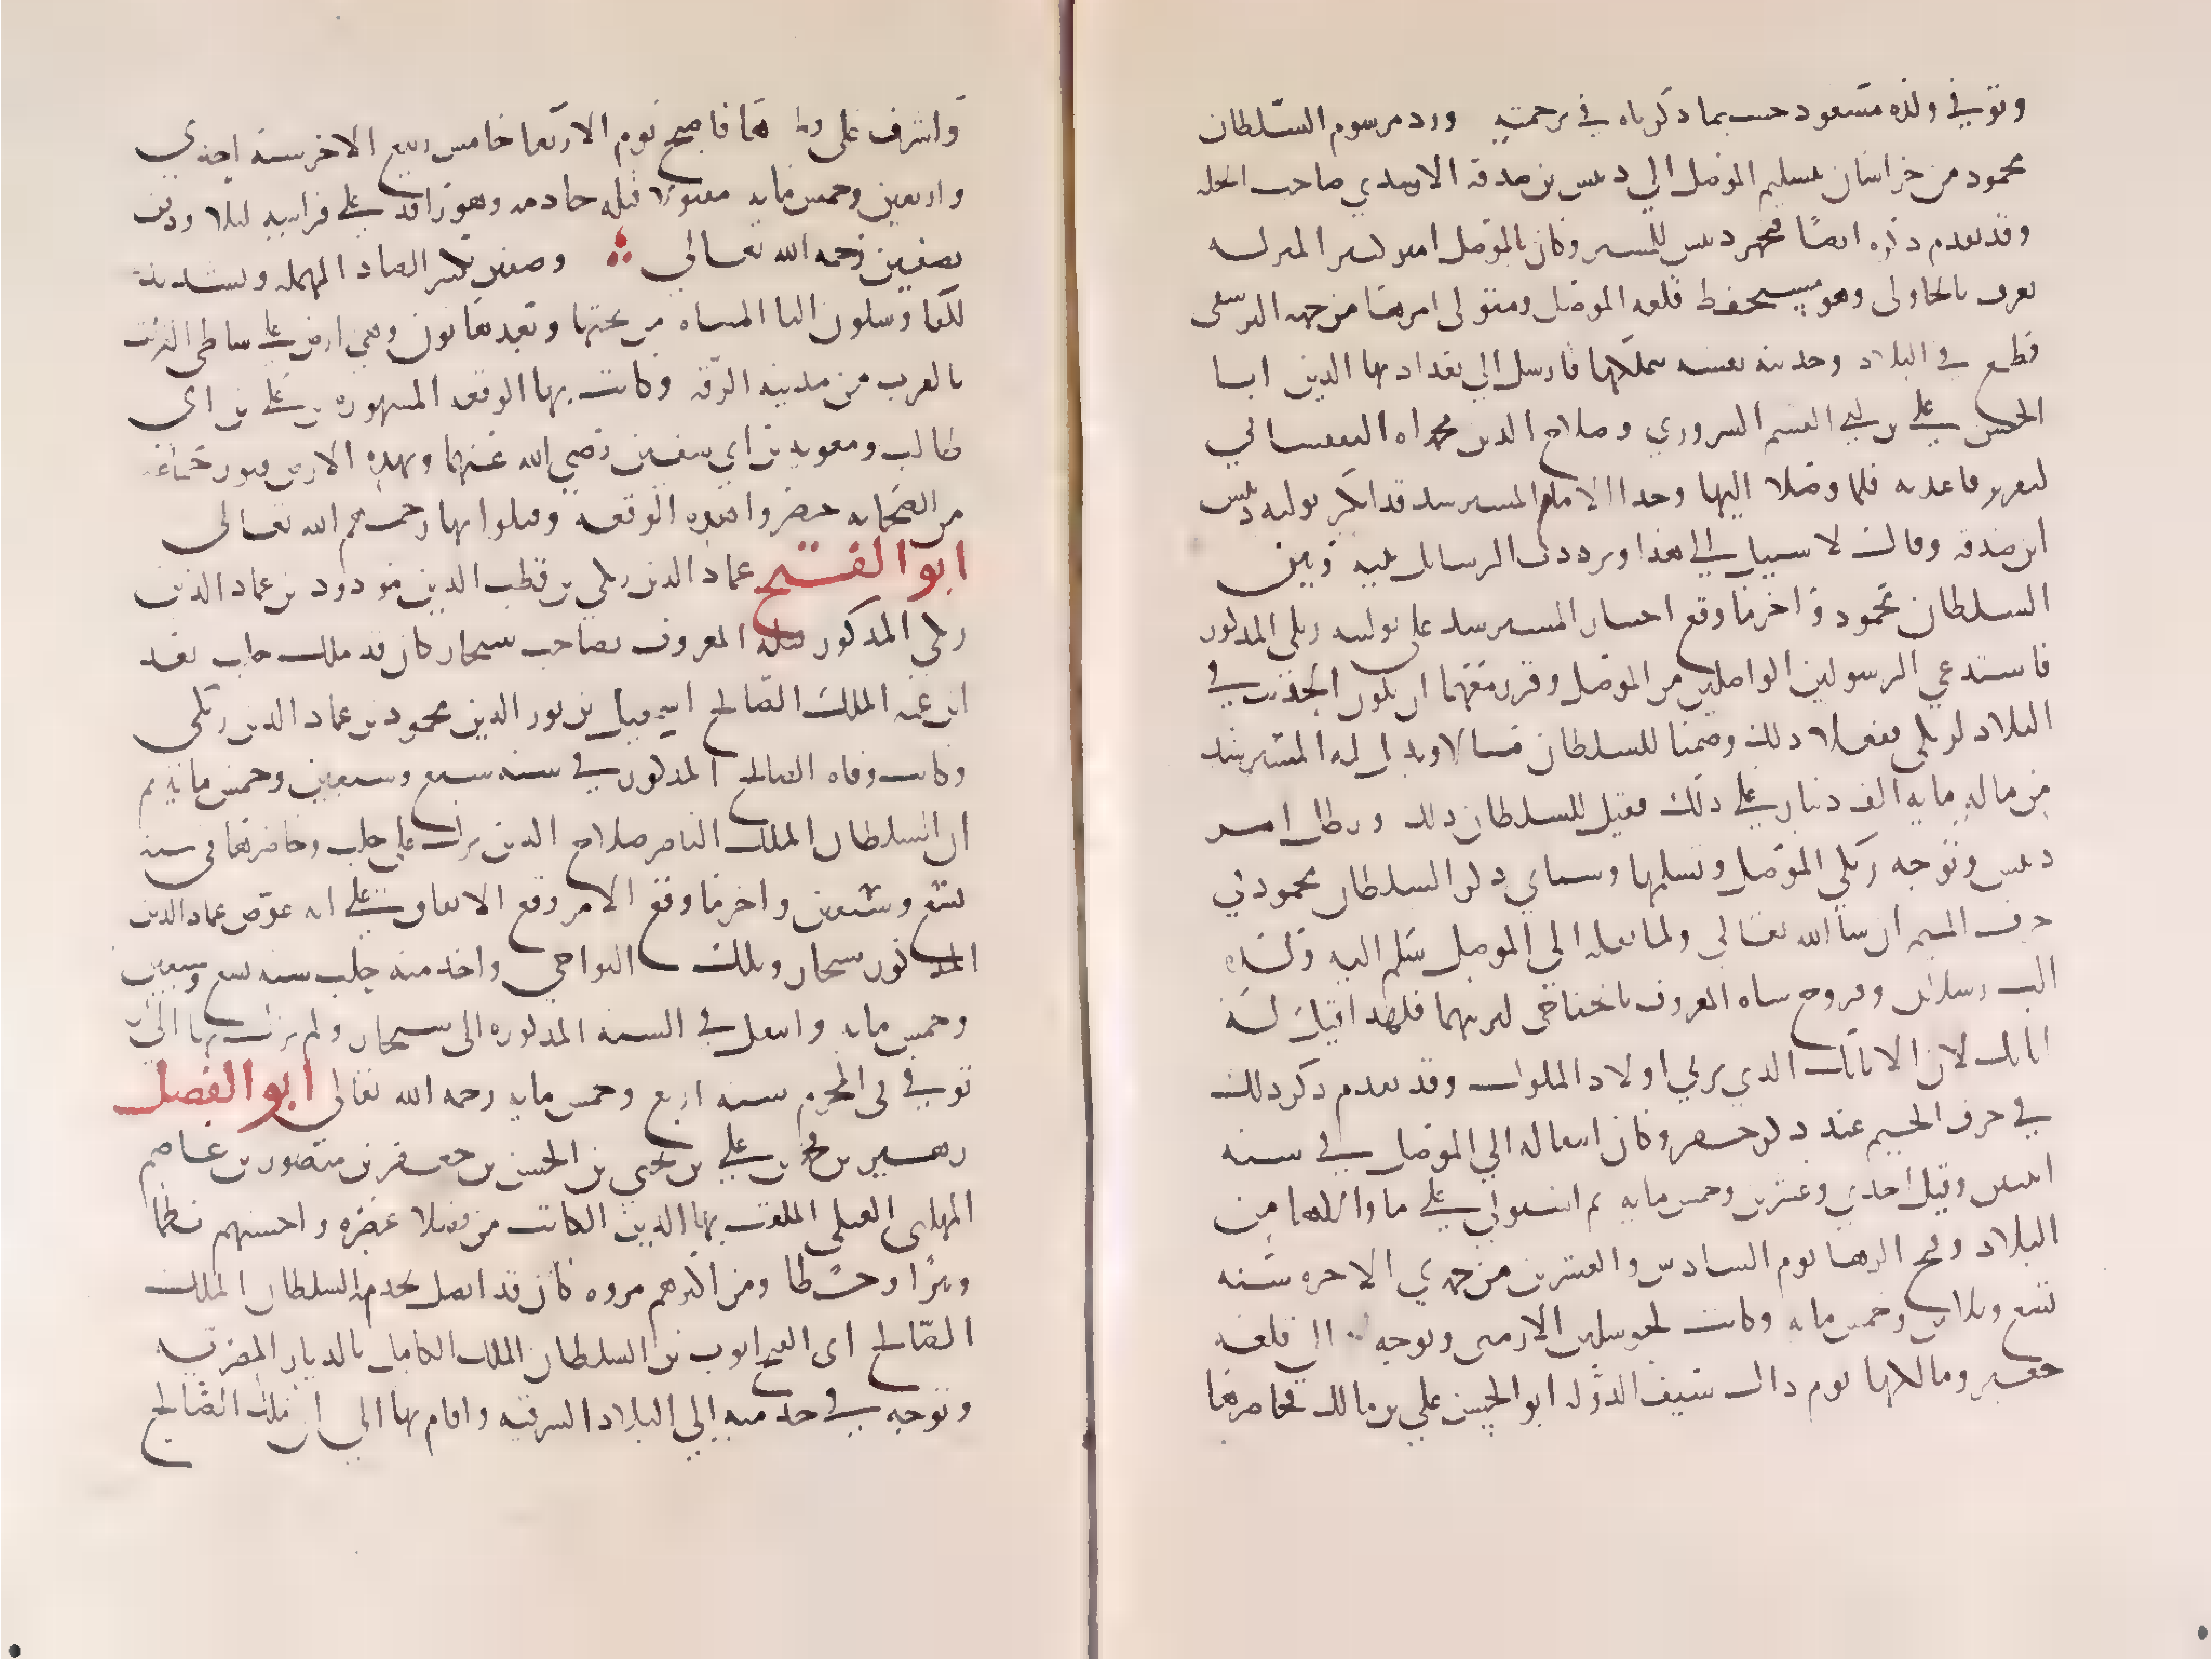 وتوفي ولده مسعود حسبما ذكرناه في ترجمته ورد مرسوم السلطان
محمود من خراسان بتسليم الموصل الى دبيس بن صدقة الاسدي صاحب الحلة
وقد تقدم ذكره ايضا فتجهز دبيس للمسير وكان بالموصل امير كبير المنزلة
يعرف بالجاولى وهو مستحفظ قلعة الموصل ومتولى امرها من جهة البرسقى
فطمع في البلاد وحدثته نفسه بتملكها فارسل الى بغداد بها الدين ابا
الحسن علي بن القسم الشهرزوري وصلاح الدين محمد اليغيسياني
لتقرير قاعدته فلما وصلا اليها وجدا الامام المسترشد قد انكر تولية دبيس
ابن صدقة وقال لا سبيل الى هذا وترددت الرسائل بينه وبين
السلطان محمود واخر ما وقع اختيار المسترشد على تولية زنكي المذكور
فاستدعي الرسولين الواصلين من الموصل وقرر معهما ان يكون الحديث في
البلاد لزنكي ففعلا ذلك وضمنا للسلطان مالا وبذل له المسترشد
من ماله ماية الف دينار على ذلك فقيل للسلطان ذلك وبطل امر
دبيس وتوجه زنكي الموصل وتسلمها وسياتي ذكر السلطان محمود في
حرف الميم ان شا الله تعالى ولما نقله الى الموصل سلم اليه ولديه
الب رسلان وفروخ شاه المعروف بالخفاجي ليربيهما فلهذا قيل له
اتابك لان الاتابك الذي يربي اولاد الملوك وقد تقدم ذكر ذلك
في حرف الجيم عند ذكر جقر وكان انتقاله الى الموصل في سنة
اثنين وقيل احدى وعشرين وخمس ماية ثم استولى على ما والاها من
البلاد وفتح الرها يوم السادس والعشرين من جمدي الاخرة سنة
تسع وثلاثين وخمس ماية وكانت لجوسلين الارمني وتوجه الى قلعة
جعبر ومالكها يوم ذاك سيف الدولة ابو الحسن علي بن مالك فحاصرها
واشرف على اخذها فاصبح يوم الاربعا خامس ربيع الاخر سنة احدي
واربعين وخمس ماية مقتولا قتله خادمه وهو راقد على فراشه ليلا ودفن
بصفين رحمه الله تعالى وصفين بكسر الصاد المهملة وتشديد
الفا وسكون اليا المثناه من تحتها وبعدها نون وهي ارض على شاطي الفرات
بالقرب من مدينة الرقة وكانت بها الوقعة المشهورة بين علي بن ابي
طالب ومعوية بن ابي سفين رضي الله عنهما وبهذه الارض قبور جماعة
من الصحابة حضروا هذه الوقعة وقتلوا بها رحمهم الله تعالى
ابو الفتح عماد الدين زنكي بن قطب الدين مودود بن عماد الدين
زنكي المذكور قبله المعروف بصاحب سنجار كان قد ملك حلب بعد
ابن عمه الملك الصالح اسمعيل بن نور الدين محمود بن عماد الدين زنكي
وكانت وفاة الصالح المذكور في سنة سبع وسبعين وخمس ماية ثم
ان السلطان الملك الناصر صلاح الدين نزل على حلب وحاصرها في سنة
تسع وسبعين واخر ما وقع الامر وقع الاتفاق على انه عوض عماد الدين
المذكور سنجار وتلك النواحي واخذ منه حلب سنة تسع وسبعين
وخمس ماية وانتقل في السنة المذكورة الى سنجار ولم يزل بها الى ان
توفي في المحرم سنة اربع وخمس ماية رحمه الله تعالى ابو الفضل
زهير بن محمد بن علي بن يحيى بن الحسن بن جعفر بن منصور بن عاصم
المهلبي العتكي الملقب بها الدين الكاتب من فضلا عصره واحسنهم نظما
ونثرا وخطا ومن اكبرهم مروه كان قد اتصل بخدمة السلطان الملك
الصالح ابي الفتح ايوب بن السلطان الملك الكامل بالديار المصرية
وتوجه في خدمته الى البلاد الشرقية واقام بها الى ان ملك الصالح